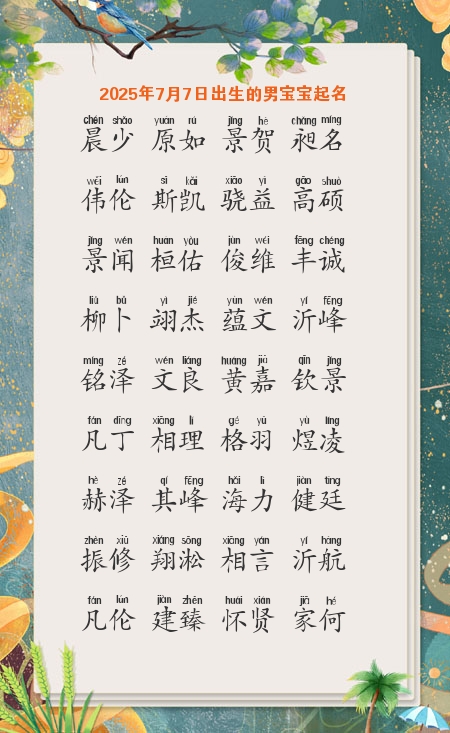 2025年7月7日出生的男宝宝起名
chén shǎo yuán rú jǐng hè chǎng míng
晨少 原如 景贺 昶名
wěi lún sī kǎi xiāo yì gāo shuò
伟伦 斯凯 骁益 高硕
jǐng wén huán yòu jùn wéi fēng chéng
景闻 桓佑 俊维 丰诚
liǔ bǔ yì jié yùn wén yí fēng
柳卜 翊杰 蕴文 沂峰
míng zé wén liáng huáng jiā qīn jǐng
铭泽 文良 黄嘉 钦景
fán dīng xiāng lǐ gé yǔ yù líng
凡丁 相理 格羽 煜凌
hè zé qí fēng hǎi lì jiàn tíng
赫泽 其峰 海力 健廷
zhèn xiū xiáng sōng xiāng yán yí háng
振修 翔淞 相言 沂航
fán lún jiàn zhēn huái xián jiā hé
凡伦 建臻 怀贤 家何